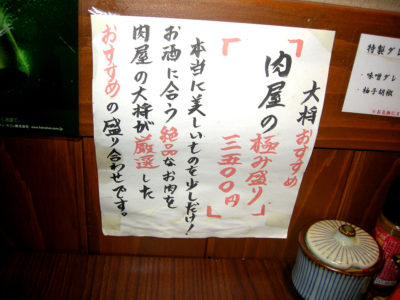 大将おすすめ
「肉屋の極み盛り」
三五〇〇円
本当に美しいものを少しだけ！
お酒に合う絶品なお肉を
肉屋の大将が厳選した
おすすめの盛り合わせです。
特製ダレ
・味噌ダレ
・柚子胡椒